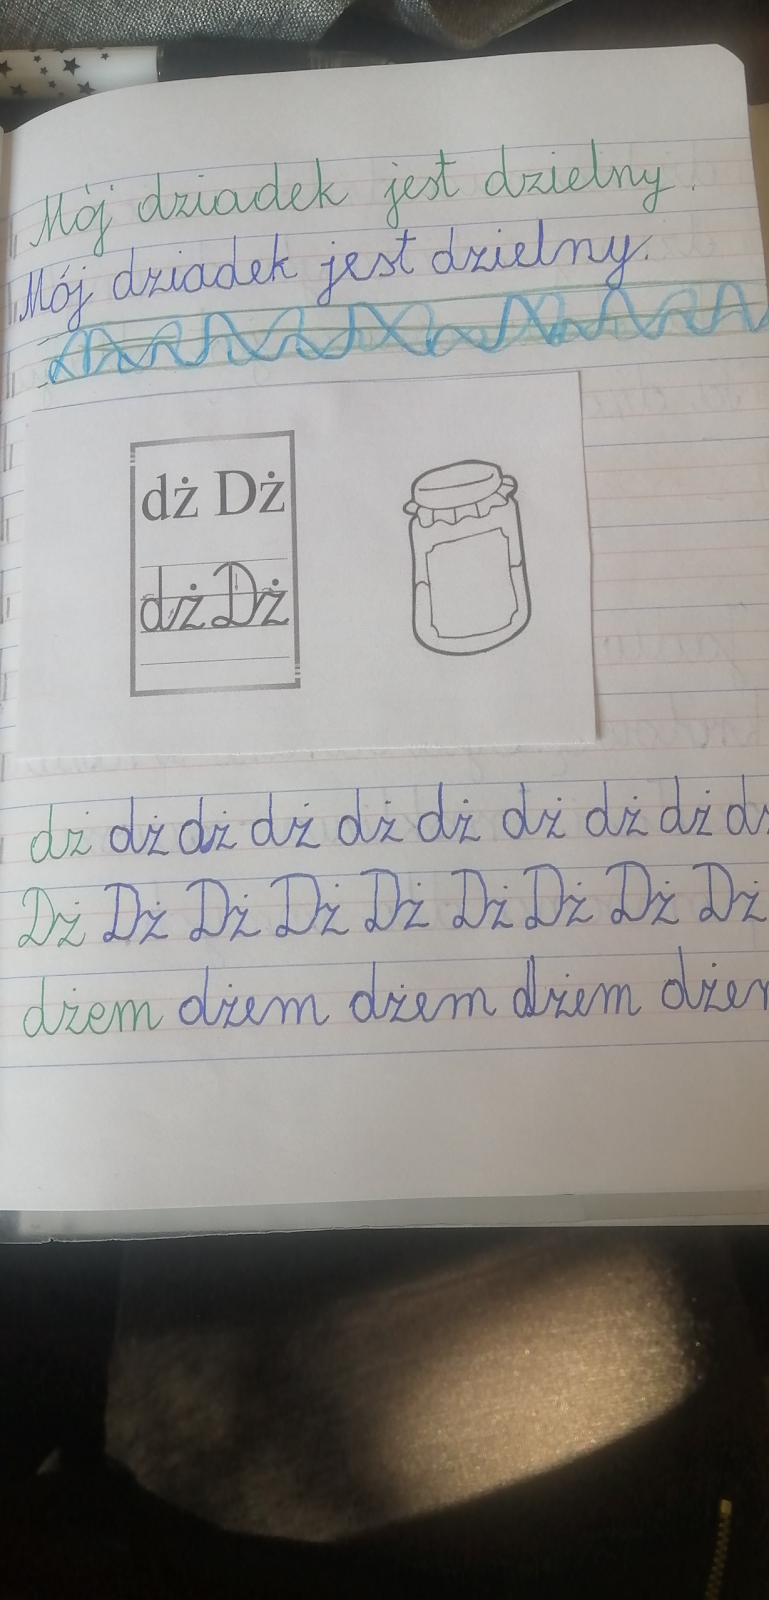 Mój dziadek jest dzielny.
Mój dziadek jest dzielny.
dż Dż
dż Dż
dż dż dż dż dż dż dż dż dż dż
Dż Dż Dż Dż Dż Dż Dż Dż Dż
dżem dżem dżem dżem dżem